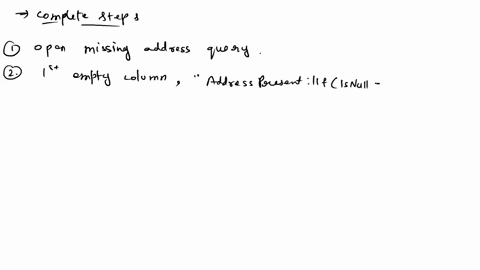 → complete steps
① open missing address query.
②. 1st empty column, " AddressPresent: IIf (IsNull -